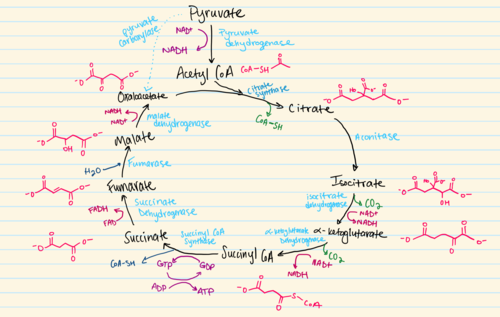 Pyruvate
pyruvate
carboxylase
NAD+
NADH
Pyruvate
dehydrogenase
Acetyl CoA
CoA-SH
Oxaloacetate
citrate
synthase
Citrate
CoA-SH
NADH
NAD+
malate
dehydrogenase
Malate
Aconitase
H2O
Fumerase
Fumarate
Isocitrate
isocitrate
dehydrogenase
CO2
NAD+
NADH
FADH
FAD
Succinate
Dehydrogenase
Succinate
Succinyl CoA
Synthase
α-ketoglutarate
Dehydrogenase
α-ketoglutarate
CO2
Succinyl CoA
NAD+
NADH
CoA-SH
GTP
GDP
ADP
ATP
O-
O-
OH
S-CoA